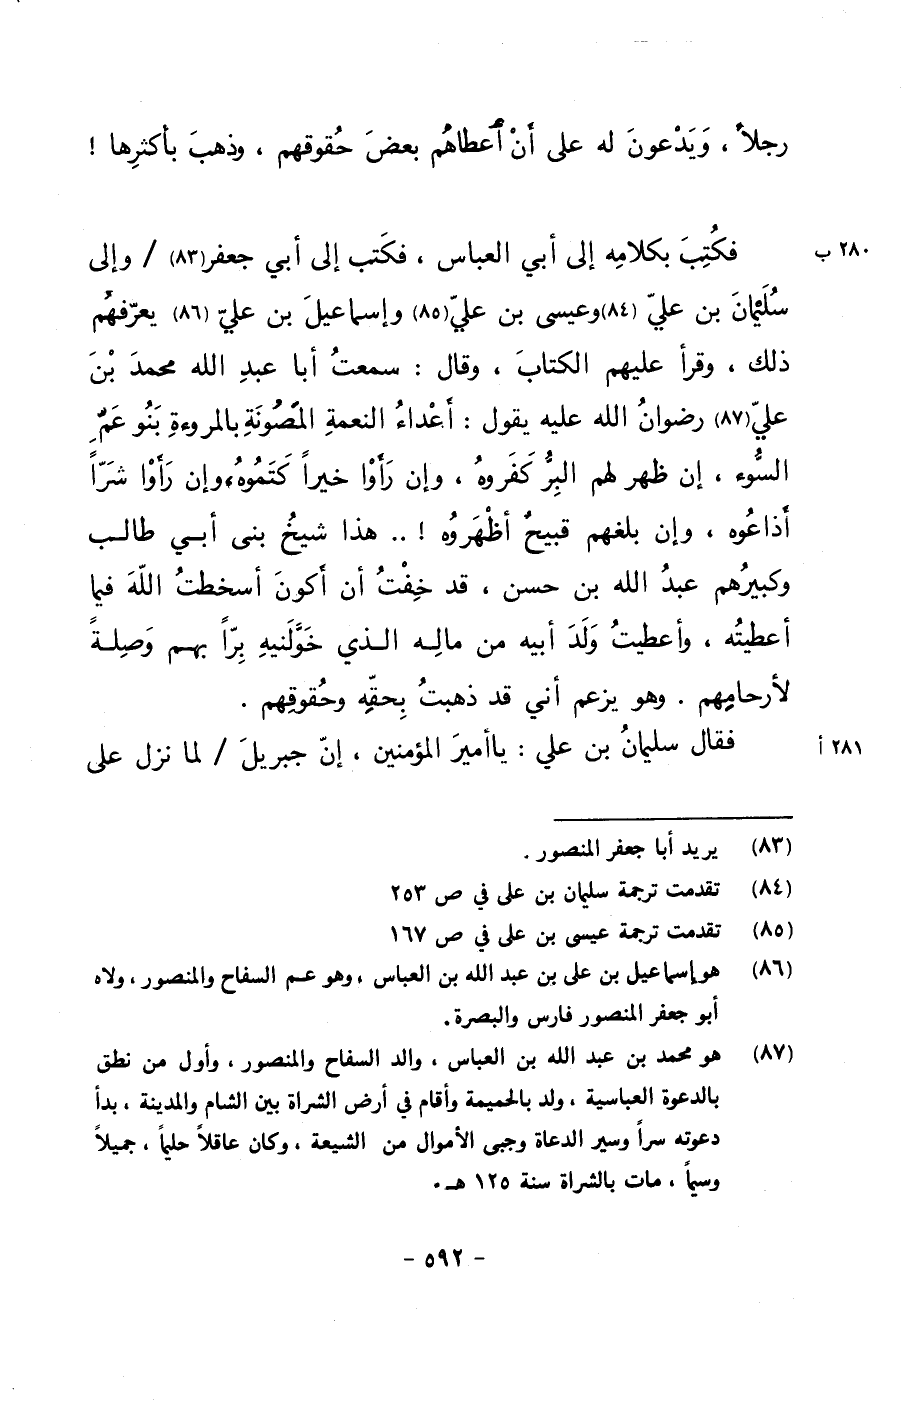 رجلاً ، وَيَدْعونَ له على أَنْ أعطاهُم بعضَ حُقوقهم ، وذهبَ بأكثرِها !
٢٨٠ ب فكُتِبَ بكلامِه إلى أبي العباس ، فكَتب إلى أبي جعفر(٨٣) / وإلى
سُلَيْمانَ بن عليّ (٨٤)وعيسى بن عليّ(٨٥) وإسماعيلَ بن عليّ (٨٦) يعرّفهُم
ذلك ، وقرأ عليهم الكتابَ ، وقال : سمعتُ أبا عبدِ الله محمدَ بْنَ
عليّ(٨٧) رضوانُ الله عليه يقول : أَعْداءُ النعمةِ المَصُونَةِ بالمروءةِ بَنُو عَمِّ
السُّوء ، إن ظهر لهم البِرُّ كَفَروهُ ، وإن رَأَوْا خيراً كَتَمُوهُ،وإن رَأَوْا شَرّاً
أَذاعُوه ، وإن بلغهم قبيحٌ أظْهَروُه ! .. هذا شيخُ بنى أبـي طالـب
وكبيرُهم عبدُ الله بن حسن ، قد خِفْتُ أن أَكونَ أسخطتُ اللّهَ فيما
أعطيتُه ، وأعطيتُ وَلَدَ أبيه من مالِـه الـذي خَوَّلَنيهِ بِرّاً بهـم وَصِلـةً
لأرحامِهم . وهو يزعم أني قد ذهبتُ بِحقّهِ وحُقوقِهم .
٢٨١ أ فقال سليمانُ بن علي : ياأميرَ المؤمنين ، إنّ جبريلَ / لما نزل على
(٨٣) يريد أبا جعفر المنصور .
(٨٤) تقدمت ترجمة سليمان بن على في ص ٢٥٣
(٨٥) تقدمت ترجمة عيسى بن على في ص ١٦٧
(٨٦) هوإسماعيل بن على بن عبد الله بن العباس ، وهو عـم السفاح والمنصور ، ولاه
أبو جعفر المنصور فارس والبصرة .
(٨٧) هو محمد بن عبد الله بن العباس ، والد السفاح والمنصور ، وأول من نطق
بالدعوة العباسية ، ولد بالحميمة وأقام في أرض الشراة بين الشام والمدينة ، بدأ
دعوته سراً وسير الدعاة وجبى الأموال من الشيعة ، وكان عاقلاً حليماً ، جميلاً
وسيماً ، مات بالشراة سنة ١٢٥ هـ .
- ٥٩٢ -